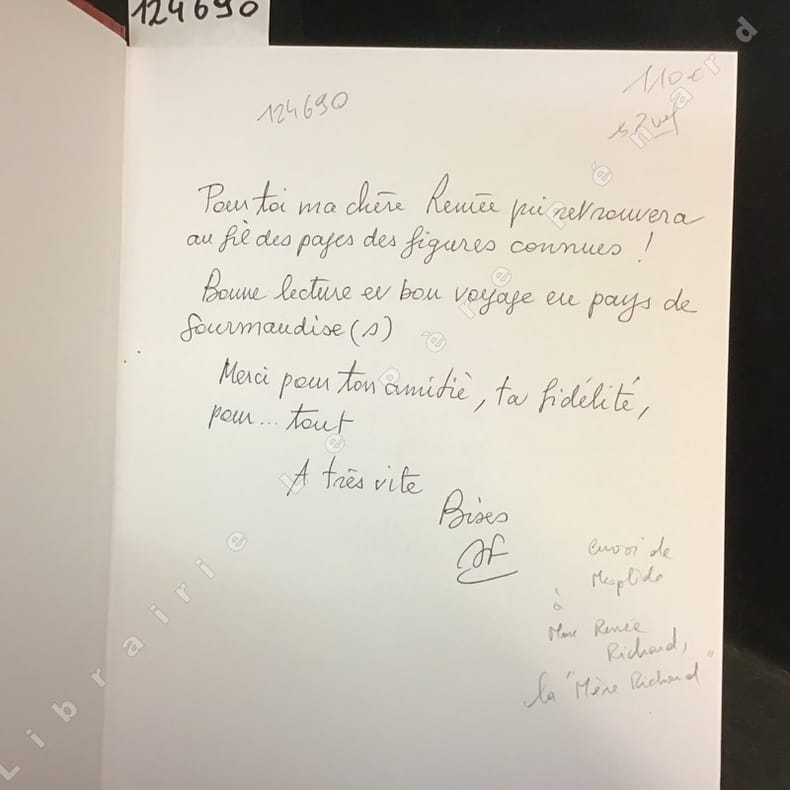 124690
124690
110€
Pour toi ma chère Renée qui retrouvera
au fil des pages des figures connues !
Bonne lecture et bon voyage en pays de
Gourmandise(s)
Merci pour ton amitié, ta fidélité,
pour... tout
A très vite
Bises
envoi de
Mesplède
à
Mme Renée
Richard,
la "Mère Richard"
Librairie Bénard